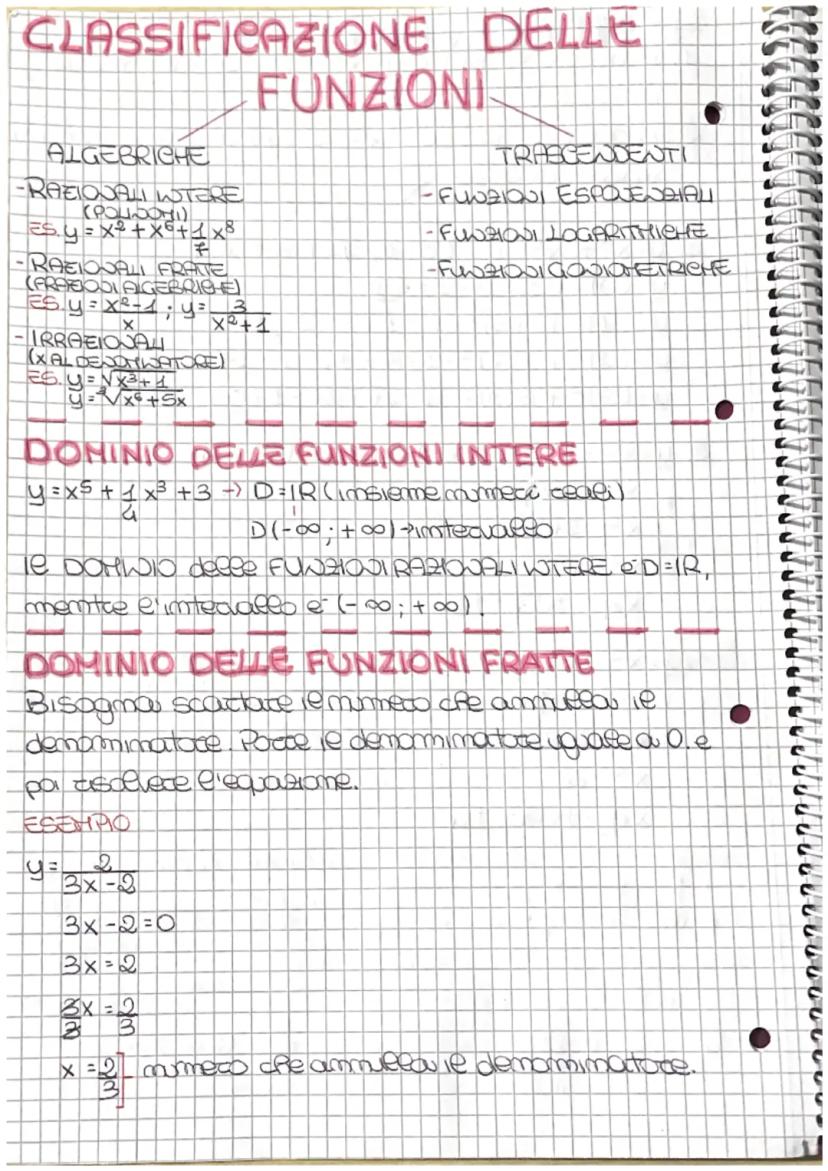 CLASSIFICAZIONE DELLE
FUNZIONI
ALGEBRICHE
TRASCENDENTI
-RAZIONALI INTERE
(POLINOMI)
ES. y = x² + x⁶ + 1/7 x⁸
-RAZIONALI FRATTE
(FRAZIONI ALGEBRICHE)
ES. y = x²-1/x ; y = 3/x²+1
-IRRAZIONALI
(X AL DENOMINATORE)
ES. y = √x³+1
y = ³√x⁶+5x
-FUNZIONI ESPONENZIALI
-FUNZIONI LOGARITMICHE
-FUNZIONI GONIOMETRICHE
DOMINIO DELLE FUNZIONI INTERE
y = x⁵ + 1/4 x³ + 3 → D=IR (insieme numeri reali)
D(-∞; +∞) → intervallo
il DOMINIO delle FUNZIONI RAZIONALI INTERE è D=IR,
mentre l'intervallo è (-∞; +∞).
DOMINIO DELLE FUNZIONI FRATTE
Bisogna scartare il numero che annulla il
denominatore. Porre il denominatore uguale a 0 e
poi risolvere l'equazione.
ESEMPIO
y = 2/3x-2
3x-2=0
3x=2
3/3x = 2/3
x = 2/3] numero che annulla il denominatore.